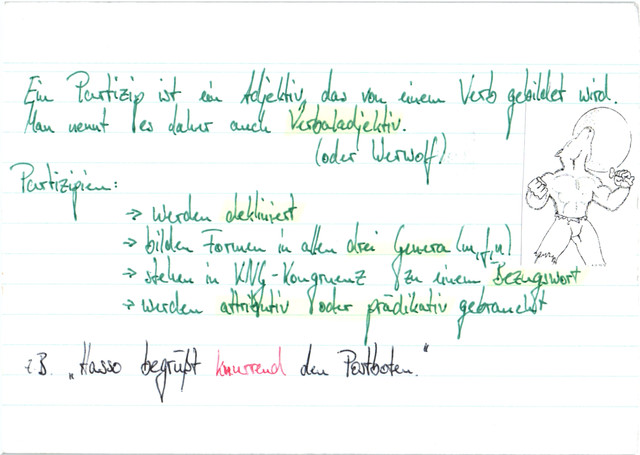 Ein Partizip ist ein Adjektiv, das von einem Verb gebildet wird.
Man nennt es daher auch Verbaladjektiv.
(oder Werwolf)
Partizipien:
→ werden dekliniert
→ bilden Formen in allen drei Genera (m, f, n)
→ stehen in KNG-Kongruenz zu einem Bezugswort
→ werden attributiv oder prädikativ gebraucht
z.B. „Hasso begrüßt knurrend den Postboten."